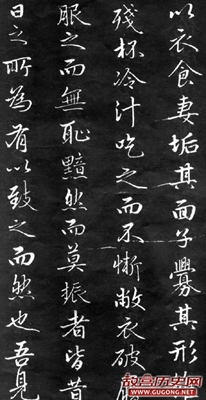 以衣食妻垢其面子爨其形
殘杯冷汁吃之而不慚敝衣破
服之而無恥黯然而莫振者皆昔
日之所為有以致之而然也吾見
故宫历史网